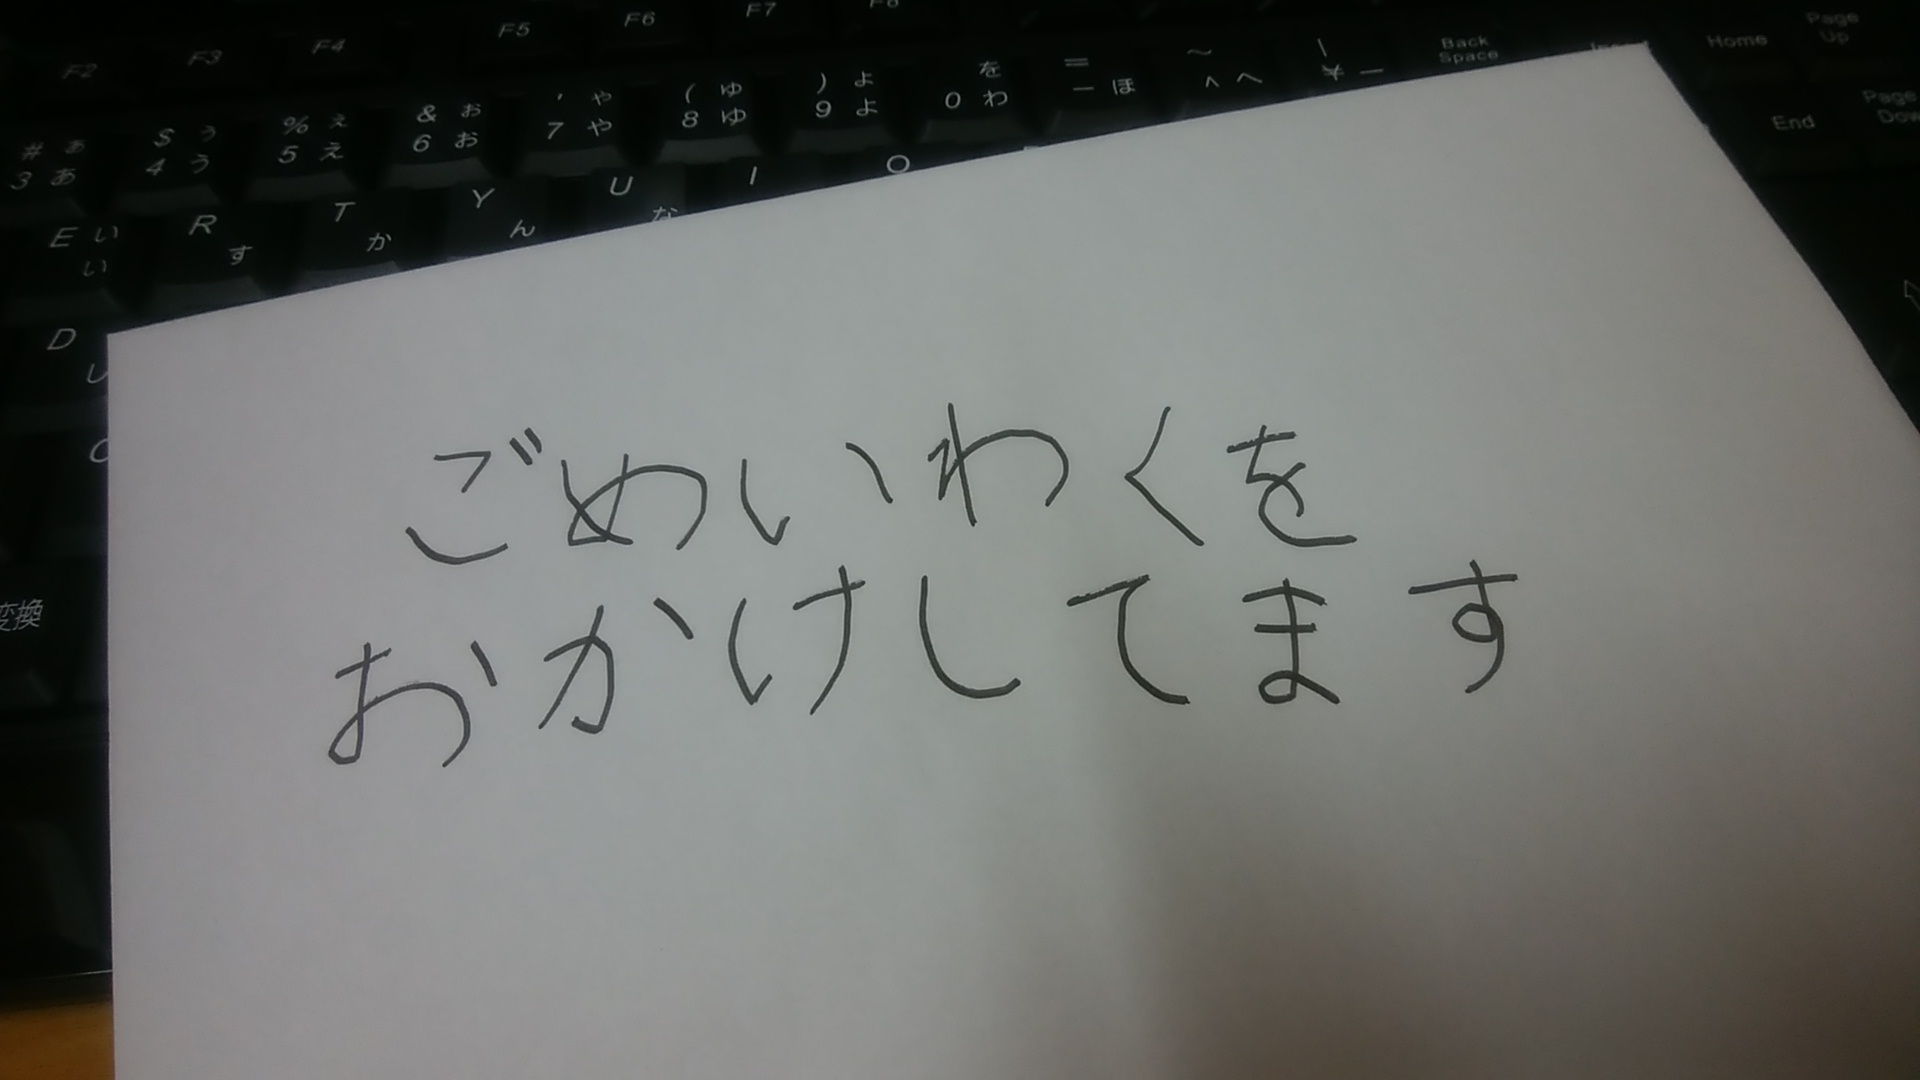 F2 F3 F4 F5 F6 F7
# ぁ $ ぅ % ぇ & ぉ ' ゃ ( ゅ ) ょ を = ~ | Back Space Home Page Up
3 あ 4 う 5 え 6 お 7 や 8 ゆ 9 よ 0 わ - ほ ^ へ ¥ ー End
E ぃ R T Y U I O
い す か ん な
D
し
変換
ごめいわくを
おかけしてます